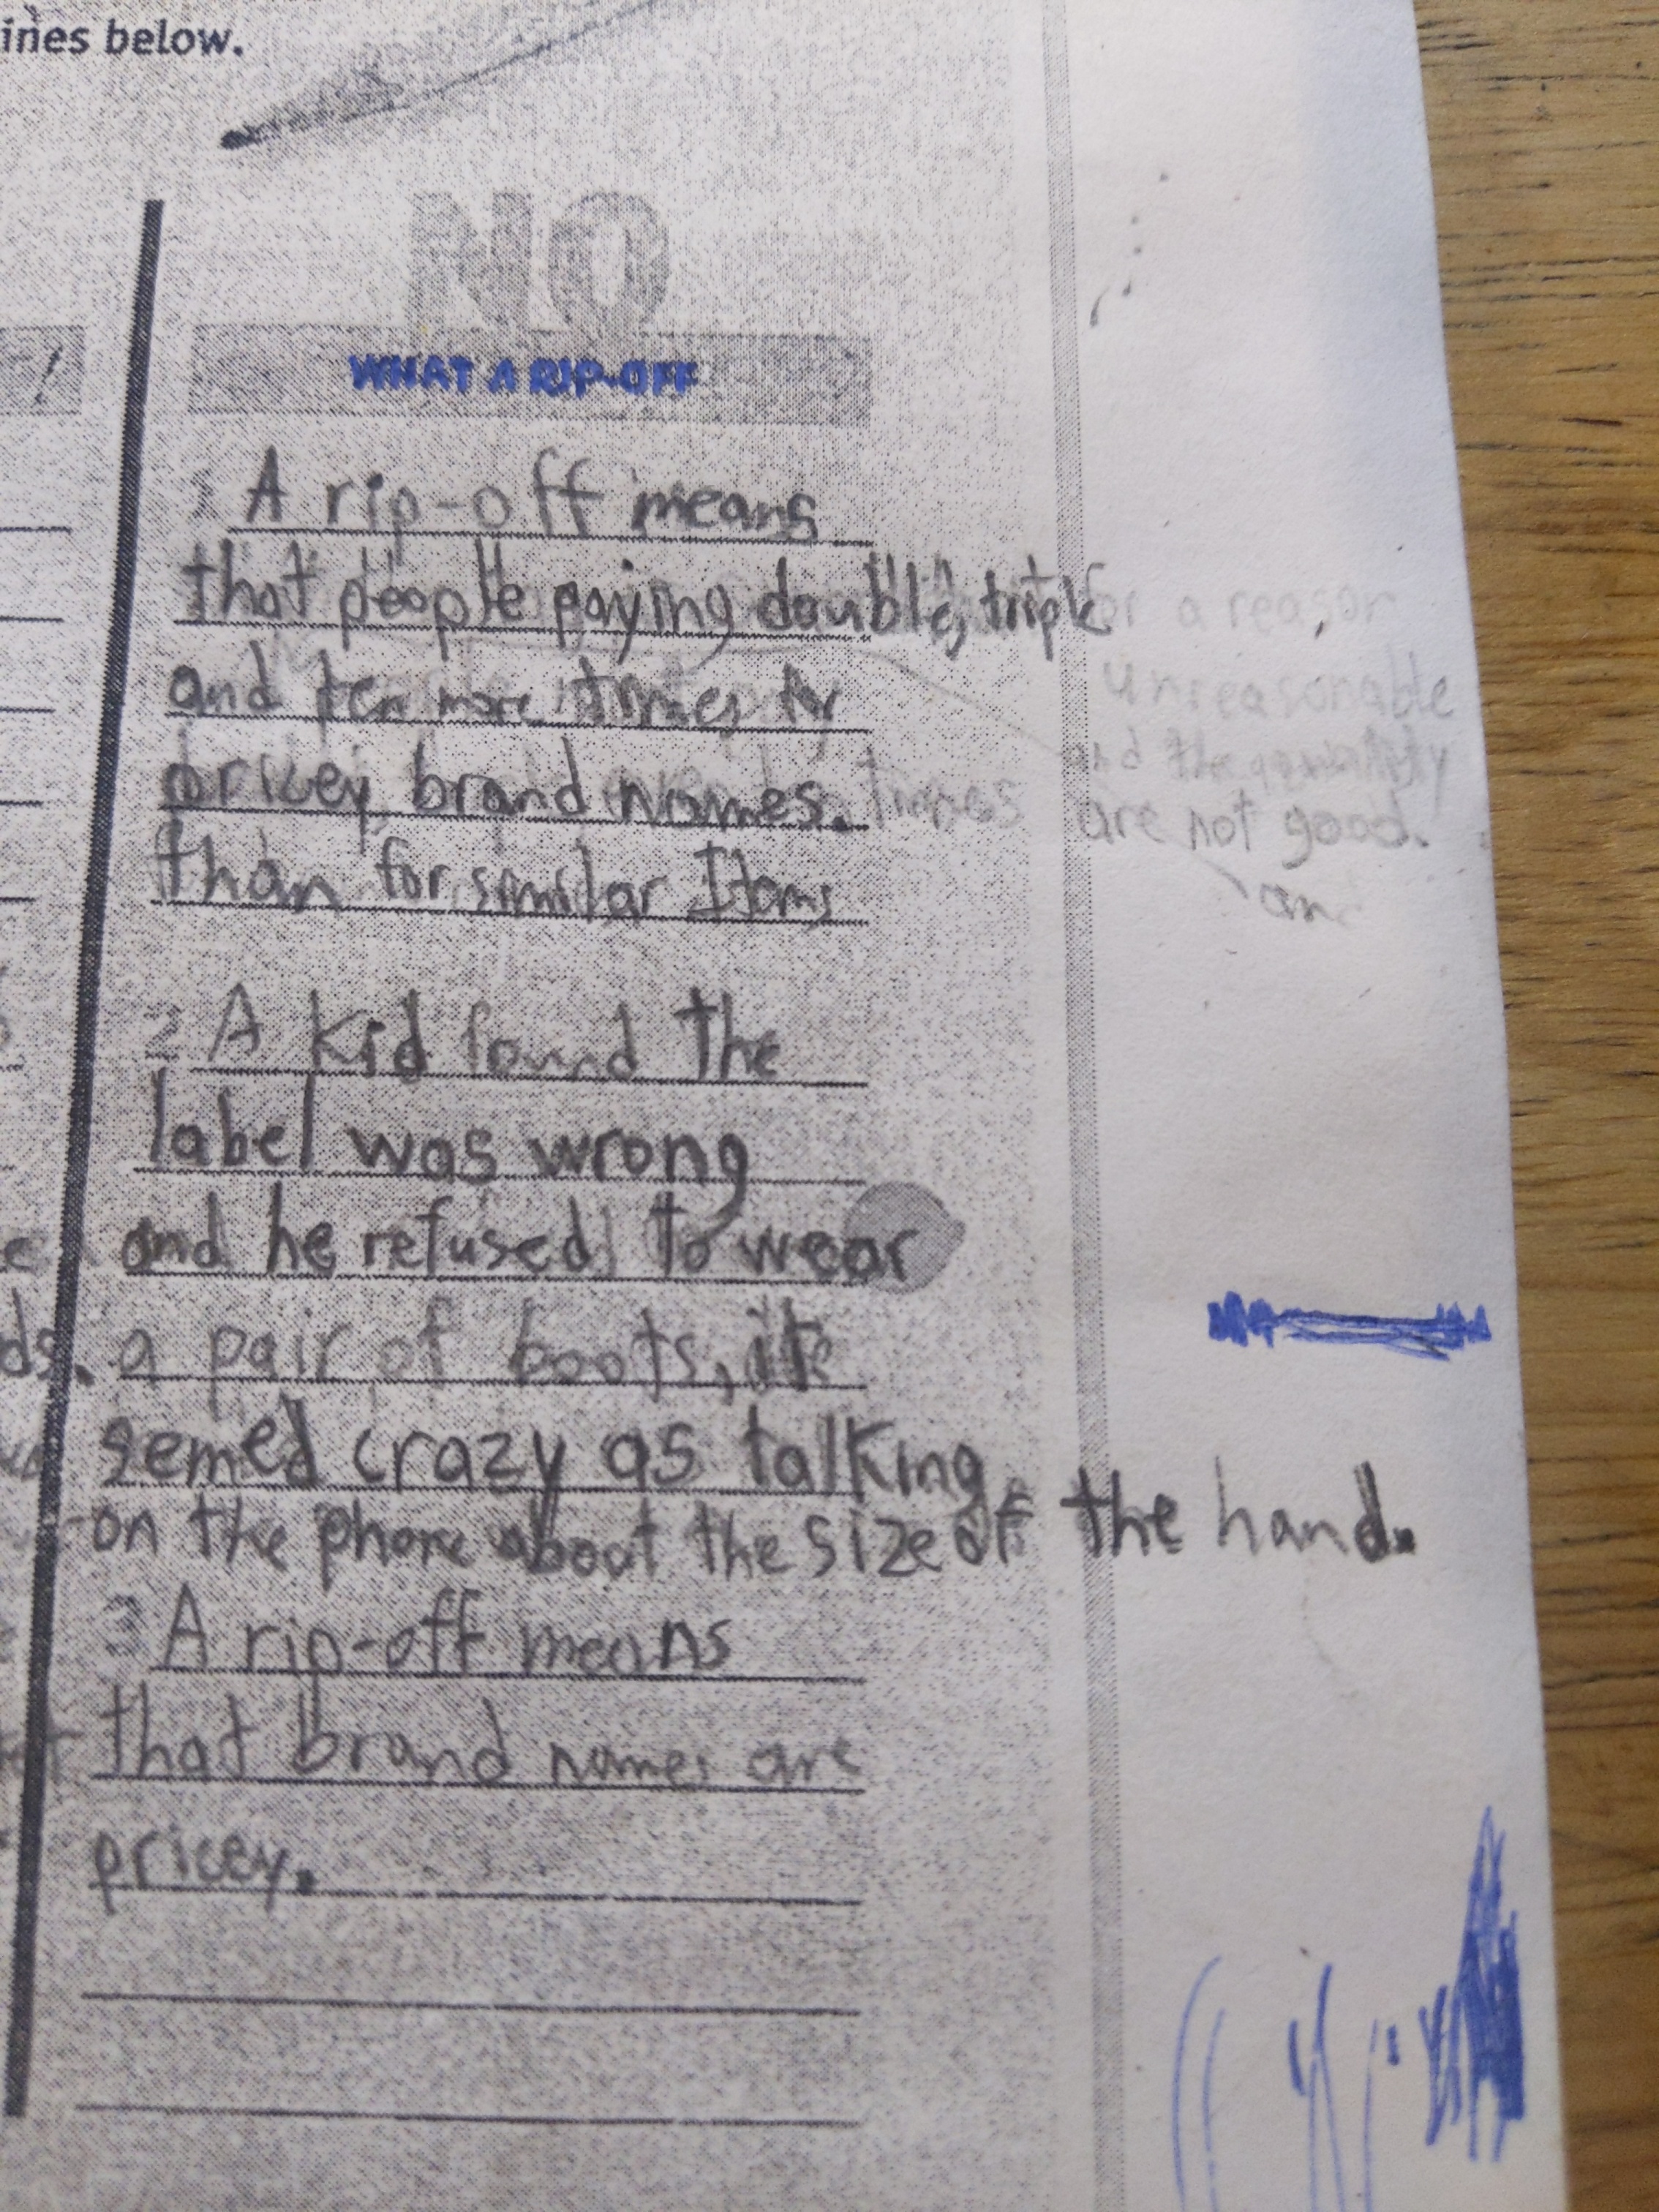 ines below.
NO
WHAT A RIP-OFF
1 A rip-off means
that people paying double, triple
and ten more times for
pricey brand names.
than for similar Items
or a reason
unreasonable
and the
times are not good.
an
2 A kid found the
label was wrong
and he refused to wear
ds. a pair of boots, it
semed crazy as talking
on the phone about the size of the hand.
3 A rip-off means
that brand names are
pricey.